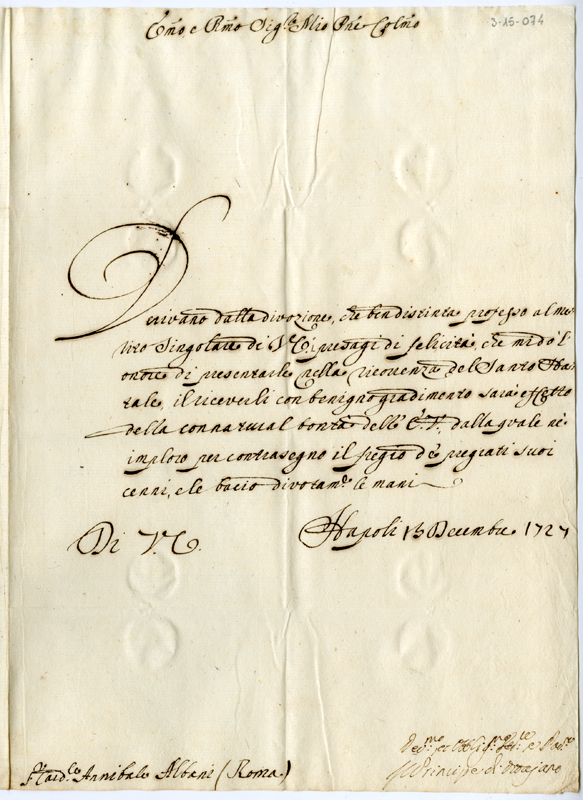 3-15-074
Emo, e Rmo Sig.re Mio Pne Colmo
Derivano dalla divozione, che ben distinta professo al me-
rito singolare di V.E. i presagi di felicità, che mi dò l'
onore di presentarle nella ricorrenza del Santo Na-
tale, il riceverli con benigno gradimento sarà effetto
della connatural bontà dell' E.V., dalla quale nè
imploro per contrasegno il fregio dè pregiati suoi
cenni, e le bacio divotam.te le mani
Di V.E. Napoli 13 Decembre 1727
Card.le Annibale Albani (Roma)
Il Principe di